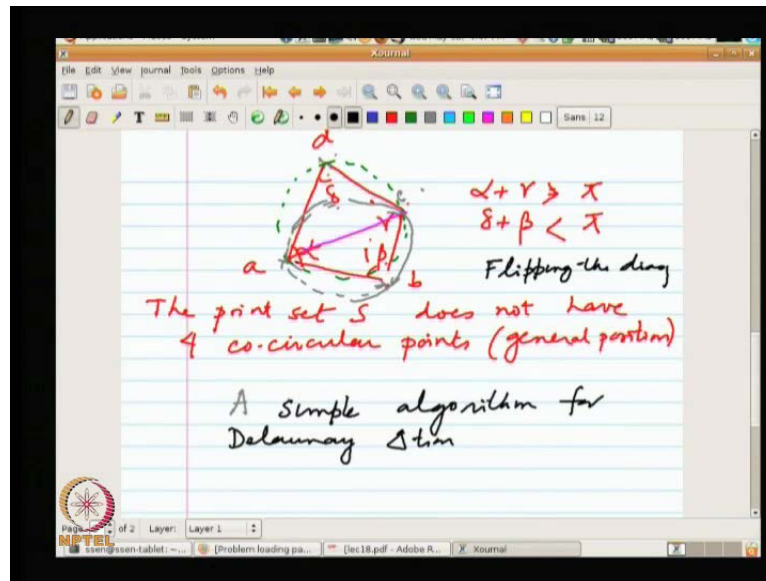 Xournal
File Edit View Journal Tools Options Help
T
Sans 12
d
δ
γ
α
i β
a
b
α + γ > π
δ + β < π
Flipping the diag
The point set S does not have
4 co-circular points (general position)
A simple algorithm for
Delaunay Δtion
Page of 2 Layer: Layer 1
NPTEL
ssen@ssen-tablet: ~... [Problem loading pa... [lec18.pdf - Adobe R... Xournal